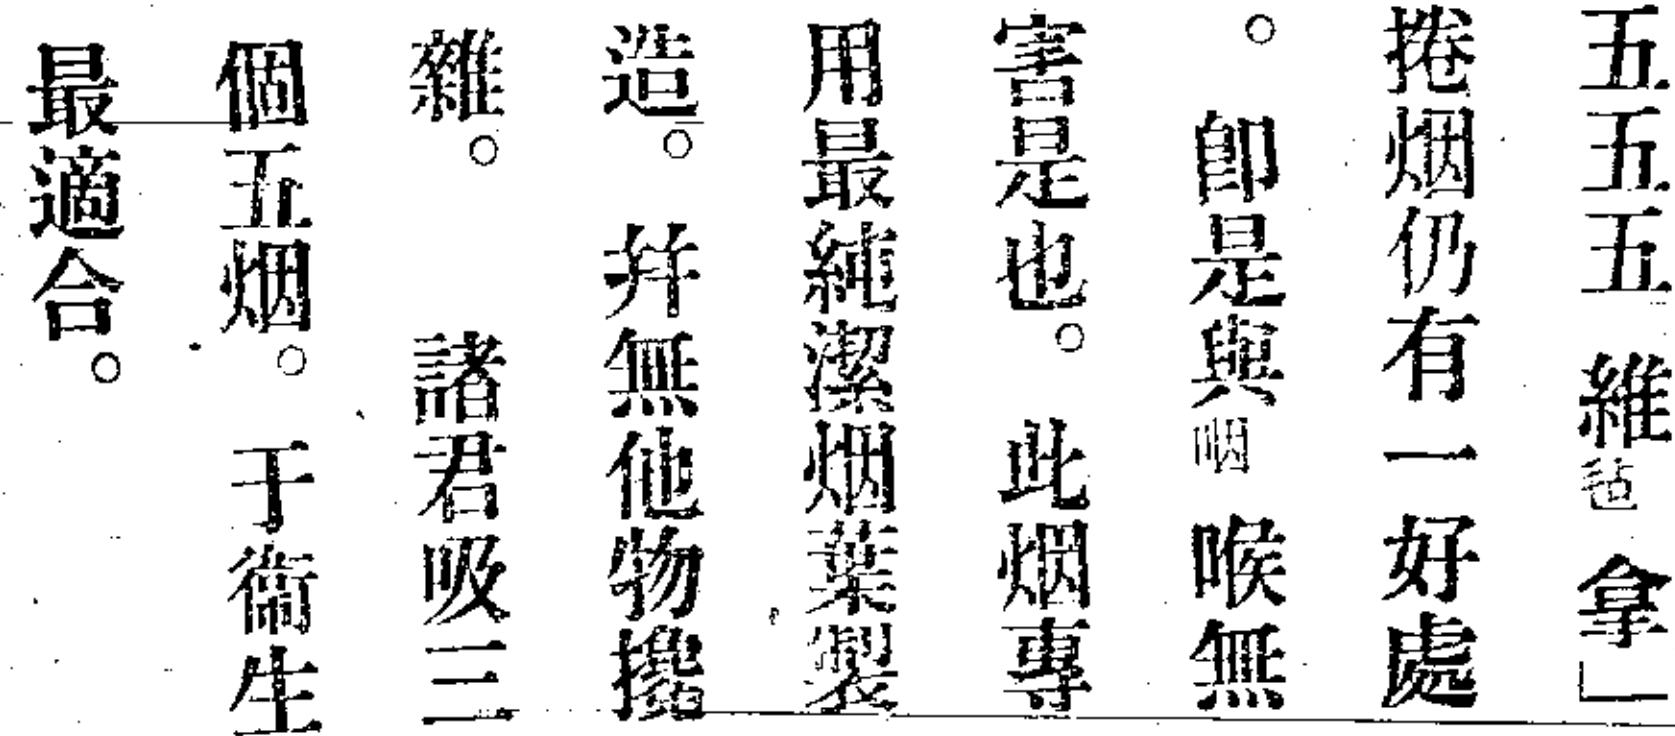 五五五 維毡拿」
捲烟仍有一好處
。卽是與咽喉無
害是也。此烟專
用最純潔烟葉製
造。幷無他物攙
雜。 諸君吸三
個五烟。于衞生
最適合。